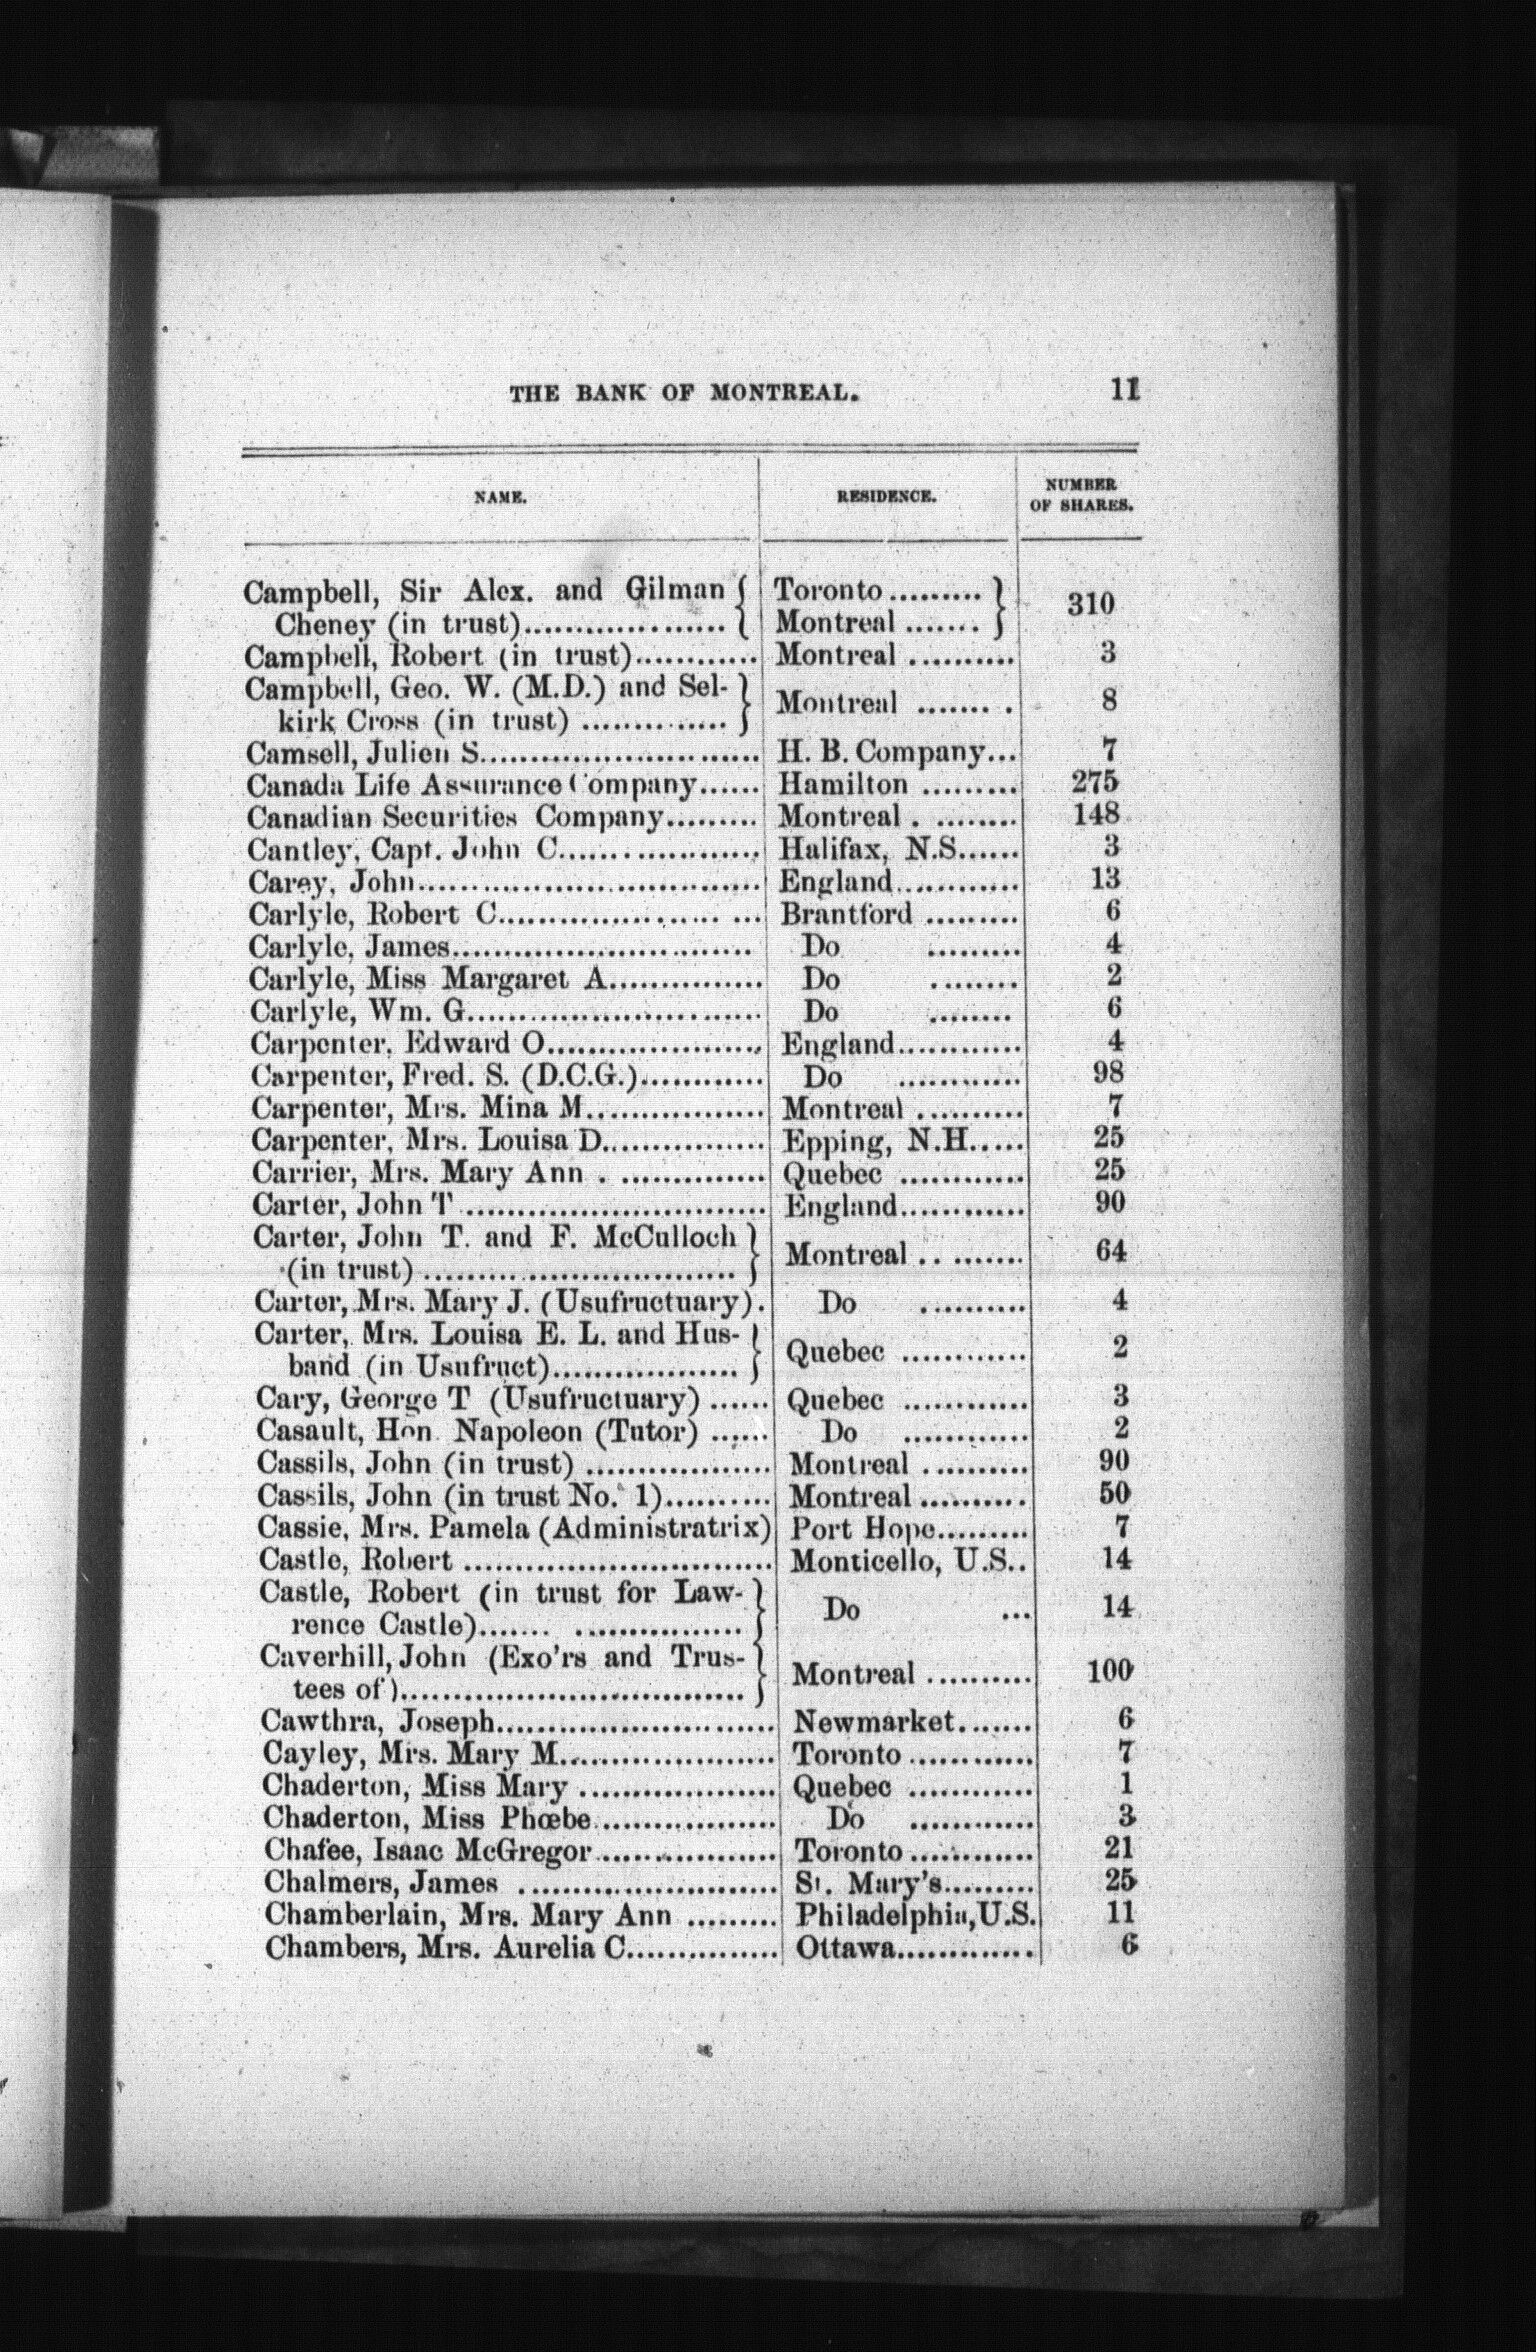 THE BANK OF MONTREAL. 11
NAME. RESIDENCE. NUMBER
OF SHARES.
Campbell, Sir Alex. and Gilman Toronto
Cheney (in trust) Montreal 310
Campbell, Robert (in trust) Montreal 3
Campbell, Geo. W. (M.D.) and Sel-
kirk Cross (in trust) Montreal 8
Camsell, Julien S. H. B. Company 7
Canada Life Assurance Company Hamilton 275
Canadian Securities Company Montreal 148
Cantley, Capt. John C. Halifax, N.S. 3
Carey, John England 13
Carlyle, Robert C. Brantford 6
Carlyle, James Do 4
Carlyle, Miss Margaret A. Do 2
Carlyle, Wm. G. Do 6
Carpenter, Edward O. England 4
Carpenter, Fred. S. (D.C.G.) Do 98
Carpenter, Mrs. Mina M. Montreal 7
Carpenter, Mrs. Louisa D. Epping, N.H. 25
Carrier, Mrs. Mary Ann Quebec 25
Carter, John T England 90
Carter, John T. and F. McCulloch
(in trust) Montreal 64
Carter, Mrs. Mary J. (Usufructuary). Do 4
Carter, Mrs. Louisa E. L. and Hus-
band (in Usufruct) Quebec 2
Cary, George T (Usufructuary) Quebec 3
Casault, Hon. Napoleon (Tutor) Do 2
Cassils, John (in trust) Montreal 90
Cassils, John (in trust No. 1) Montreal 50
Cassie, Mrs. Pamela (Administratrix) Port Hope 7
Castle, Robert Monticello, U.S. 14
Castle, Robert (in trust for Law-
rence Castle) Do 14
Caverhill, John (Exo'rs and Trus-
tees of) Montreal 100
Cawthra, Joseph Newmarket 6
Cayley, Mrs. Mary M. Toronto 7
Chaderton, Miss Mary Quebec 1
Chaderton, Miss Phœbe Do 3
Chafee, Isaac McGregor Toronto 21
Chalmers, James St. Mary's 25
Chamberlain, Mrs. Mary Ann Philadelphia, U.S. 11
Chambers, Mrs. Aurelia C. Ottawa 6